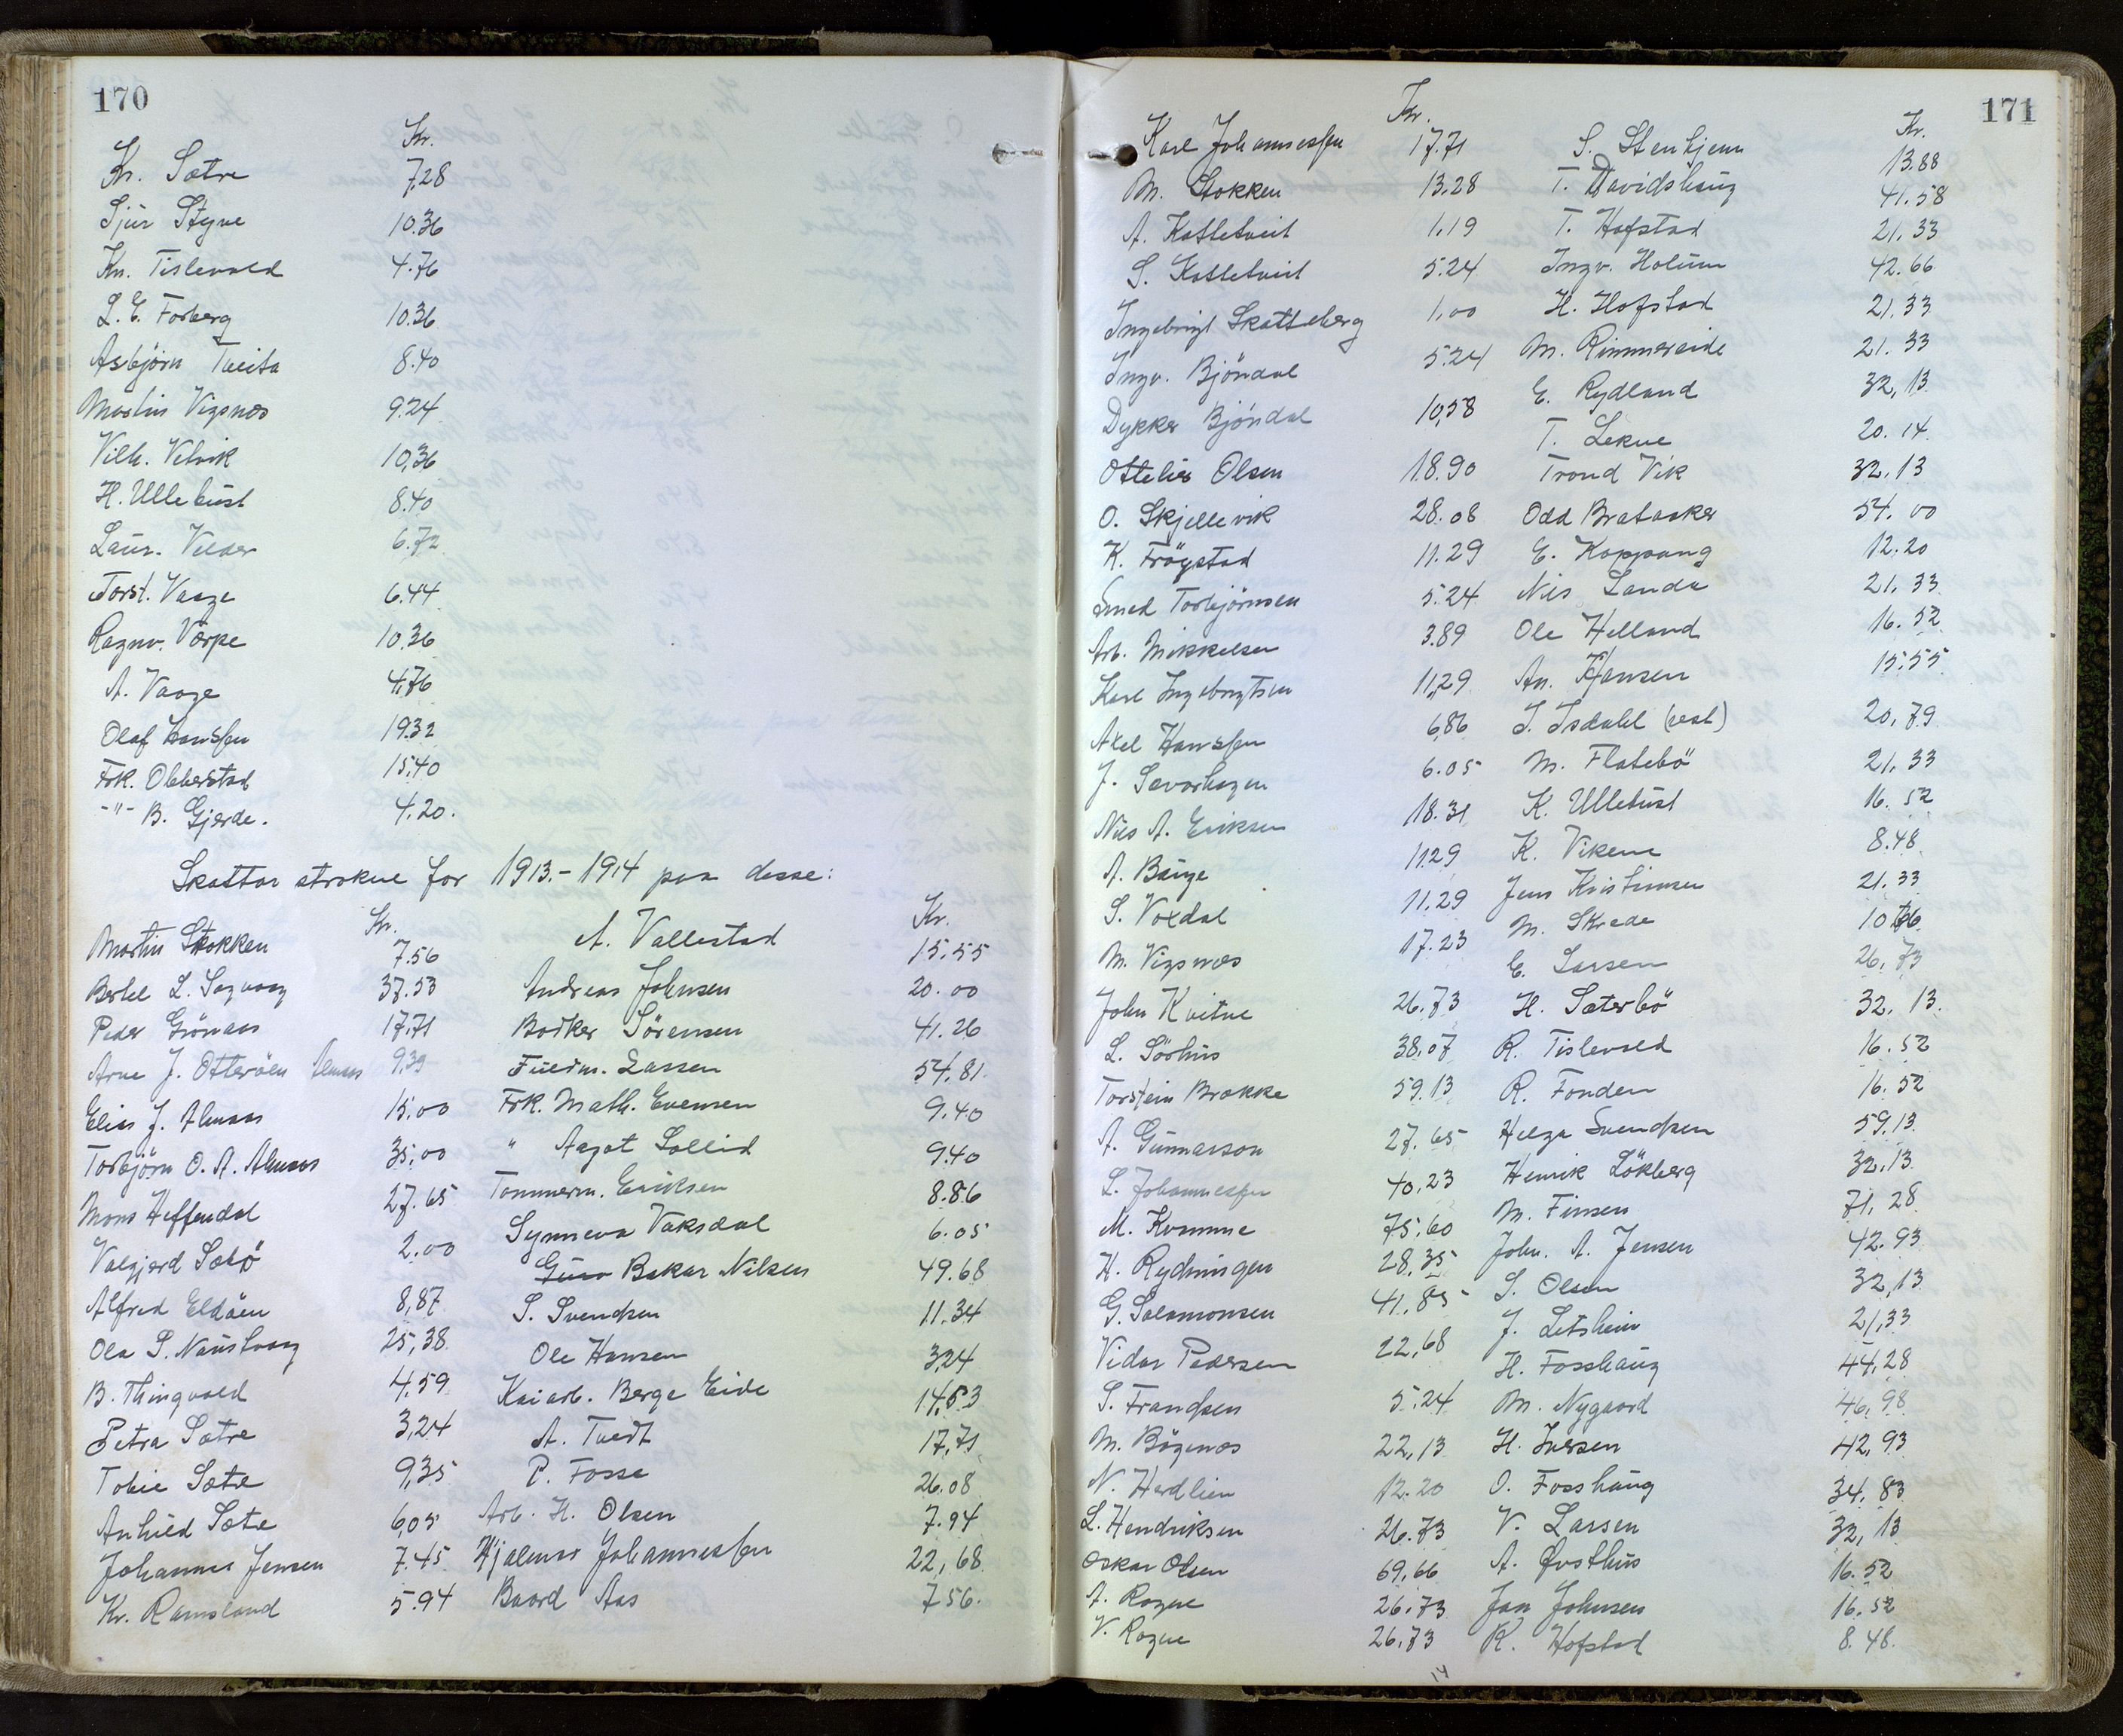 170
Kr.
Kr. Sætre 7,28
Sjur Styve 10.36
Kn. Tislevold 4.76
L. E. Forberg 10.36
Asbjörn Tveita 8.40
Martin Vigsnes 9.24
Vilh. Velvik 10,36
H. Ullebust 8.40
Laur. Velder 6.72
Torst. Vaage 6.44
Ragnv. Værpe 10.36
A. Vaage 4,76
Olaf Hanssen 19.32
Frk. Obberstad 15.40
-"- B. Gjerde. 4.20.
Skattar strokne for 1913.-1914 paa desse:
Kr.
Martin Stokken 7.56
Bertel L. Sagvaag 37.53
Peder Grönaas 17.71
Arne J. Otteröen Almaas 9,39
Elias J. Almaas 15.00
Torbjörn O. A. Almaas 35,00
Mons Heffendal 27.65
Valgjerd Sæbö 2.00
Alfred Eldöen 8,87
Ola P. Naustvaag 25,38
B. Thingvold 4,59
Petra Sætre 3,24
Tobie Sætre 9,35
Anhild Sætre 6,05
Johannes Jensen 7.45
Kr. Ramsland 5.94
Kr.
A. Vallestad 15.55
Andreas Johnsen 20.00
Bödker Sörensen 41.26
Fuldm. Lassen 54,81.
Frk. Math. Evensen 9.40
" Aagot Sollid 9.40
Tømmerm. Eriksen 8.86
Synneva Vaksdal 6.05
Guro Bakar Nilsen 49.68
S. Svendsen 11.34
Ole Hansen 3,24
Kaiarb. Berge Eide 14,53
A. Tvedt 17,71
P. Fosse 26.08
Arb. H. Olsen 7.94
Hjalmar Johannessen 22,68
Baard Aas 7.56.
171
Kr.
Karl Johannessen 17.71
M. Stokken 13.28
A. Kattetveit 1.19
S. Kattetveit 5.24
Ingebrigt Skatteberg 1,00
Ingv. Bjöndal 5.24
Dykker Bjöndal 10,58
Ottelies Olsen 18.90
O. Skjellevik 28.08
K. Fröystad 11.29
Smed Torbjörnsen 5.24
Arb. Mikkelsen 3.89
Karl Ingebrigtsen 11,29
Axel Hanssen 6,86
J. Sævarhagen 6.05
Nils A. Eriksen 18.31
A. Bauge 11.29
S. Voxdal 11.29
M. Vigsnes 17.23
John Kvitne 26.73
L. Sörhus 38.07
Torstein Brække 59.13
A. Gunnarson 27.65
L. Johannessen 40,23
M. Kvamme 75.60
H. Rydningen 28.35
G. Salomonsen 41.85
Vidar Pedersen 22,68
S. Frandsen 5.24
M. Bögenes 22,13
N. Herdlien 12.20
L. Hendriksen 26.73
Oskar Olsen 69,66
A. Ragne 26.73
V. Ragne 26,73
14
Kr.
S. Stenhjem 13.88
T. Davidshaug 41.58
T. Hofstad 21.33
Ingv. Holum 42.66
H. Hofstad 21.33
M. Rimmereide 21.33
E. Rydland 32,13
T. Lekve 20.14
Trond Vik 32,13
Odd Brataaker 54.00
E. Koppang 12.20
Nils Landa 21.33
Ole Helland 16.52
An. Hansen 15.55
I. Isdahl (rest) 20,79
M. Flatebö 21.33
K. Ullebust 16.52
K. Vikene 8.48
Jens Kristiansen 21.33
M. Skrede 10.66
E. Larsen 26,73
H. Sæterbö 32,13.
R. Tislevold 16.52
R. Fonden 16.52
Helge Svendsen 59.13
Henrik Lökberg 32,13
M. Finsen 71,28
John. A. Jensen 42.93
S. Olsen 32,13
J. Letshein 21,33
H. Fosshaug 44,28
M. Nygaard 46,98
H. Iversen 42,93
O. Fosshaug 34,83
V. Larsen 32,13
A. Øvsthus 16.52
Jan Johnsen 16.52
K. Hofstad 8.48.